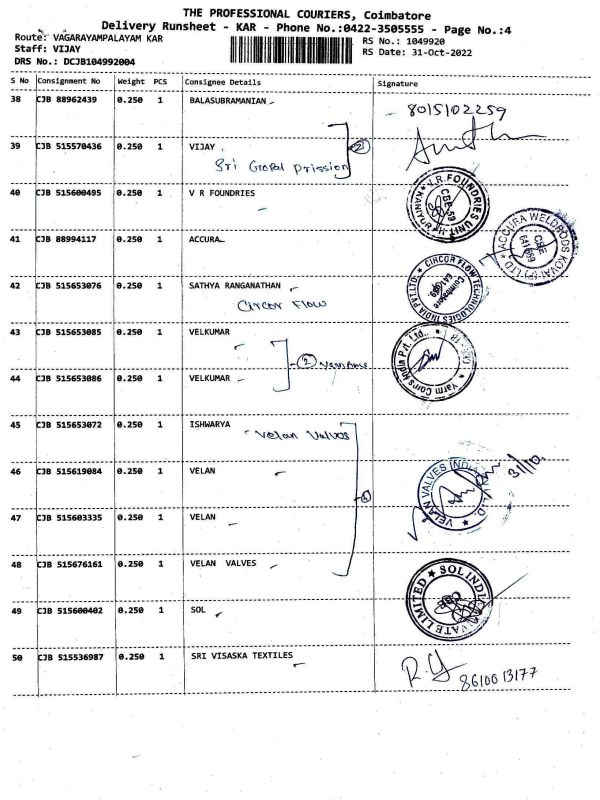 THE PROFESSIONAL COURIERS, Coimbatore
Delivery Runsheet - KAR - Phone No.:0422-3505555 - Page No.:4
Route: VAGARAYAMPALAYAM KAR
RS No.: 1049920
Staff: VIJAY
RS Date: 31-Oct-2022
DRS No.: DCJB104992004
S No Consignment No Weight PCS Consignee Details Signature
38 CJB 88962439 0.250 1 BALASUBRAMANIAN
8015102259
39 CJB 515570436 0.250 1 VIJAY
Sri Gopal
40 CJB 515600495 0.250 1 V R FOUNDRIES
V.R.FOUNDRIES UNIT
CBE-59
41 CJB 88994117 0.250 1 ACCURA
ACCURA WELDRODS KOVAI (P) LTD
CBE
641 659
42 CJB 515653076 0.250 1 SATHYA RANGANATHAN
Circor Flow
CIRCOR FLOW TECHNOLOGIES INDIA PVT.LTD.
Coimbatore
43 CJB 515653085 0.250 1 VELKUMAR
2
44 CJB 515653086 0.250 1 VELKUMAR
45 CJB 515653072 0.250 1 ISHWARYA
Velan Valvos
46 CJB 515619084 0.250 1 VELAN
VELAN VALVES
31/10
47 CJB 515603335 0.250 1 VELAN
48 CJB 515676161 0.250 1 VELAN VALVES
49 CJB 515600402 0.250 1 SOL
SOL INDIA PRIVATE LIMITED
50 CJB 515536987 0.250 1 SRI VISASKA TEXTILES
8610013177